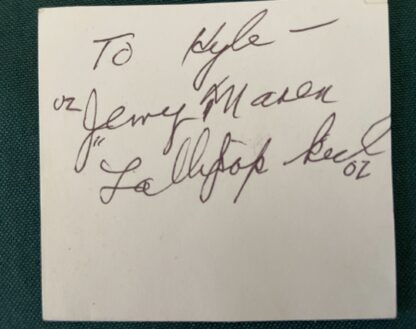 To Kyle —
OZ Jerry Maren
" Lollipop Kid
OZ